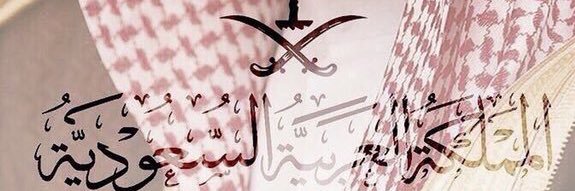 المملكة العربية السُّعُودِيَّة